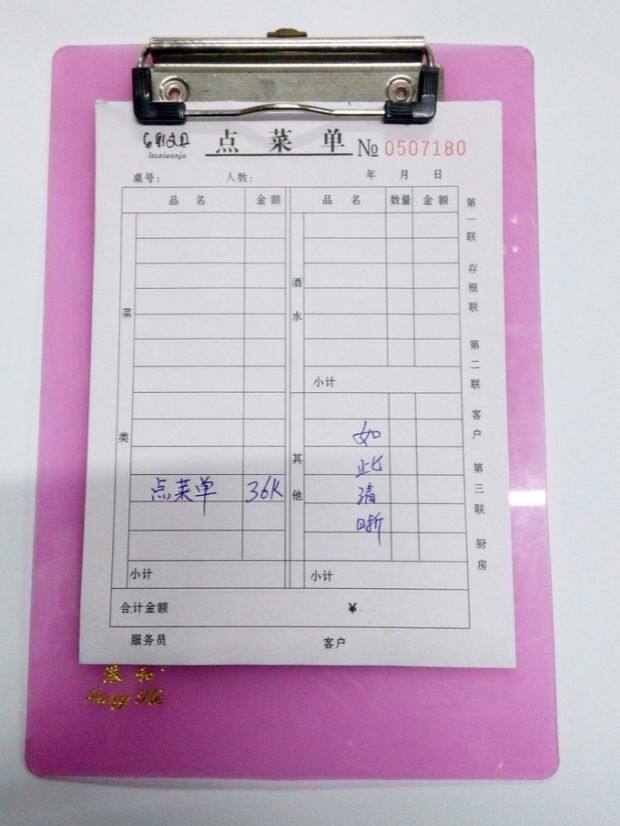 乐彩文具
lecaiwenju
点菜单 № 0507180
桌号: 人数: 年 月 日
品 名 金额 品 名 数量 金额
菜类
酒水
小计
其他
点菜单 36K
如此清晰
小计 小计
合计金额 ¥
服务员 客户
第一联 存根联 第二联 客户 第三联 厨房
港和
Gang He